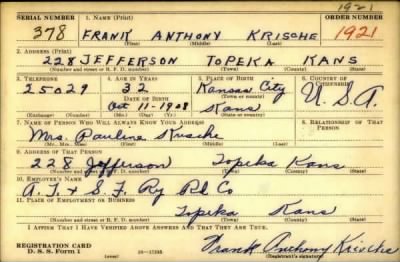 1921
SERIAL NUMBER 1. NAME (Print) ORDER NUMBER
378 FRANK ANTHONY KRISCHE 1921
(First) (Middle) (Last)
2. ADDRESS (Print)
228 JEFFERSON TOPEKA KANS
(Number and street or R. F. D. number) (Town) (County) (State)
3. TELEPHONE 4. AGE IN YEARS 5. PLACE OF BIRTH 6. COUNTRY OF CITIZENSHIP
25029 32 Kansas City U.S.A.
DATE OF BIRTH (Town or county)
Oct 11-1908 Kans
(Exchange) (Number) (Mo.) (Day) (Yr.) (State or country)
7. NAME OF PERSON WHO WILL ALWAYS KNOW YOUR ADDRESS 8. RELATIONSHIP OF THAT PERSON
Mrs. Pauline Krische
(Mr., Mrs., Miss) (First) (Middle) (Last)
9. ADDRESS OF THAT PERSON
228 Jefferson Topeka Kans
(Number and street or R. F. D. number) (Town) (County) (State)
10. EMPLOYER'S NAME
A.T. & S.F. Ry Co
11. PLACE OF EMPLOYMENT OR BUSINESS
Topeka Kans
(Number and street or R. F. D. number) (Town) (County) (State)
I AFFIRM THAT I HAVE VERIFIED ABOVE ANSWERS AND THAT THEY ARE TRUE.
REGISTRATION CARD
D. S. S. Form 1 (over) Frank Anthony Krische
(Registrant's signature)